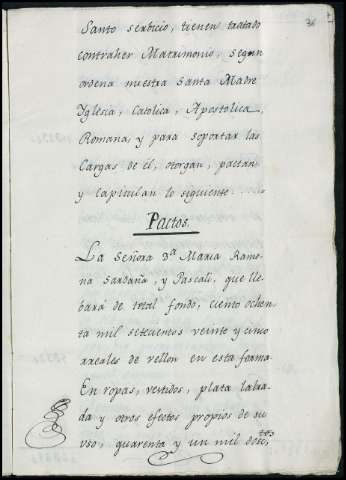 36
Santo serbicio, tienen tratado
contraher Matrimonio, segun
ordena nuestra Santa Madre
Yglesia, Catolica, Apostolica,
Romana, y para soportar las
Cargas de el, otorgan, pactan
y Capitulan lo siguiente.
Pactos.
La Señora Dª Maria Ramo
na Sardaña, y Pascali, que lle
bará de total fondo, ciento ochen
ta mil setecientos veinte y cinco
reales de vellon en esta forma
En ropas, vestidos, plata labra
da y otros efectos propios de su
uso, quarenta y un mil dosc.tos